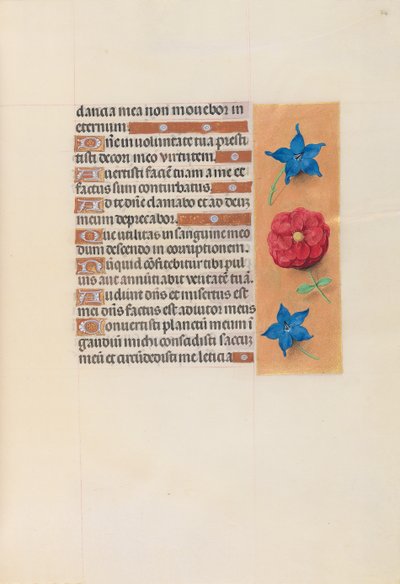 dancia mea non movebor in
eternum.
Dñe in voluntate tua presti
tisti decori meo virtutem.
Avertisti faciē tuam a me et
factus sum conturbatus.
Ad te dñe clamabo et ad deū
meum deprecabor.
Que utilitas in sanguine meo
dum descendo in corruptionem.
Nūquid cōfitebitur tibi pul
vis aut annūtiabit veritatē tuā.
Audivit dñs et misertus est
mei dñs factus est adiutor meus
Convertisti planctū meum i
gaudiū michi conscidisti saccū
meū et circūdedisti me leticia